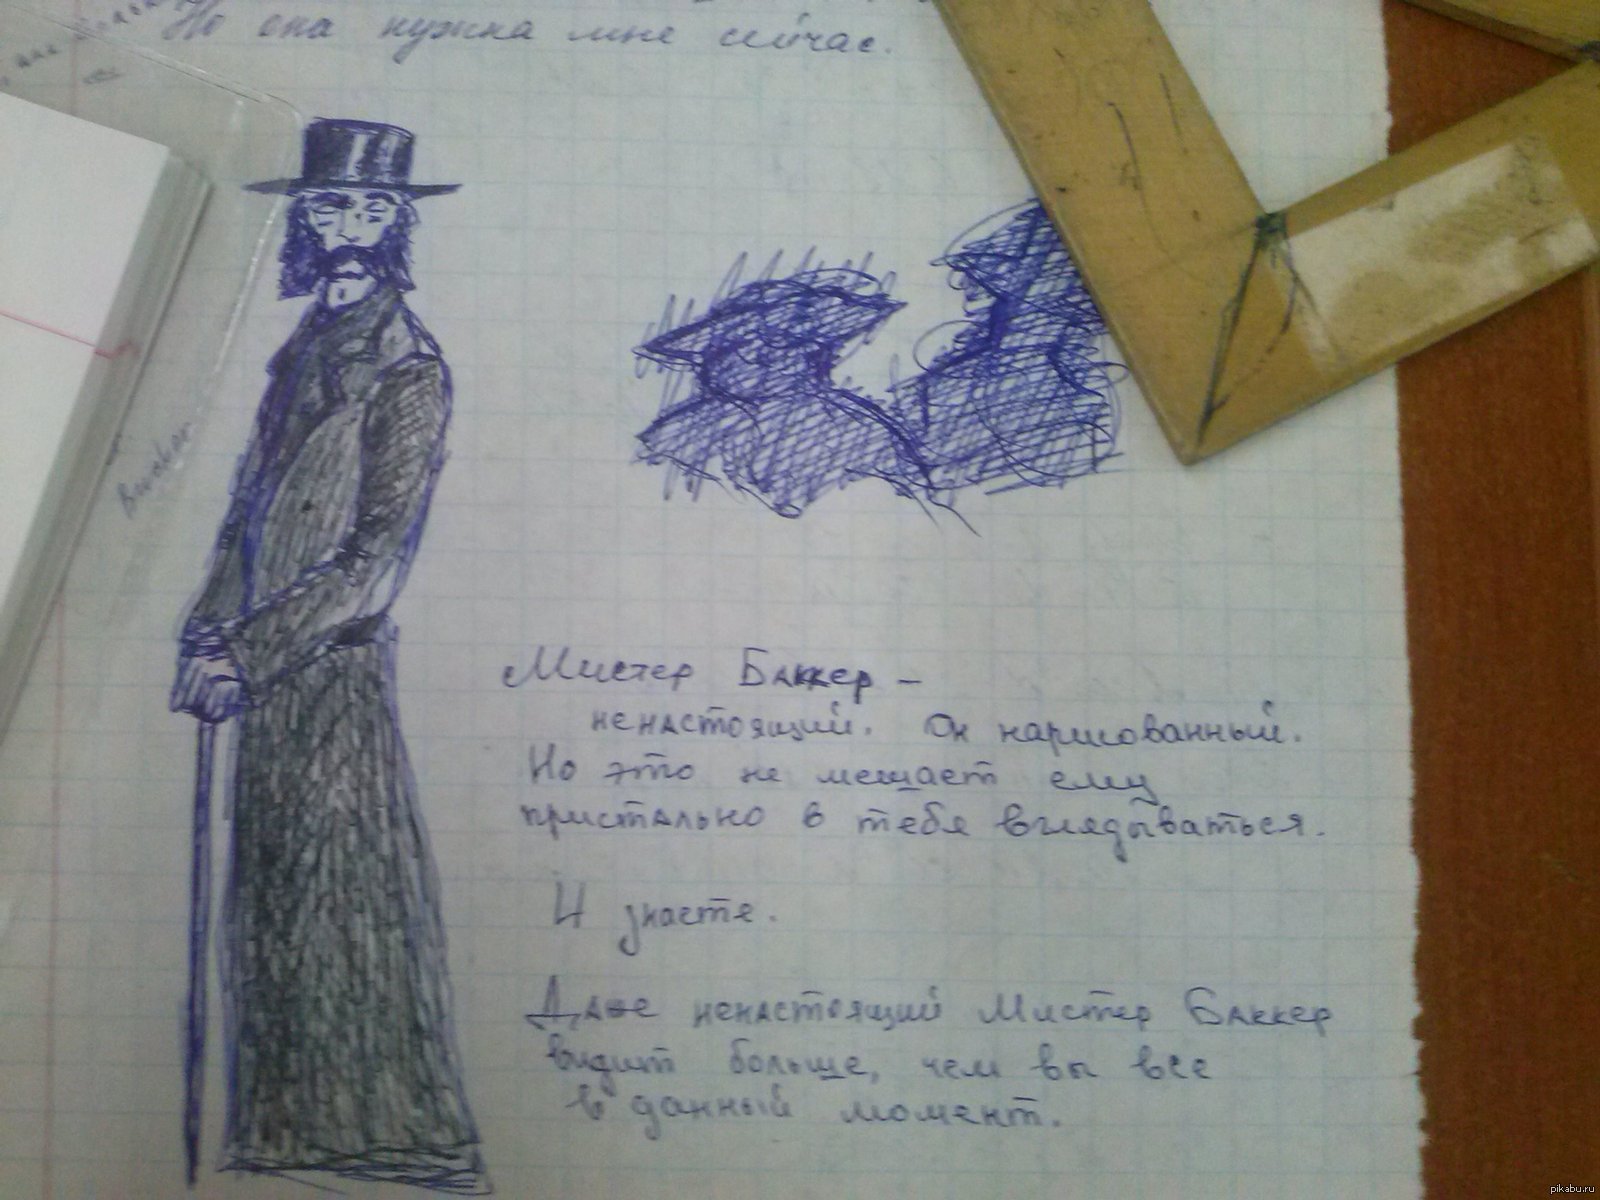 Но она нужна мне сейчас.
Мистер Баккер –
ненастоящий. Он нарисованный.
Но это не мешает ему
пристально в тебя вглядываться.
И знаете.
Даже ненастоящий Мистер Баккер
видит больше, чем вы все
в данный момент.
pikabu.ru